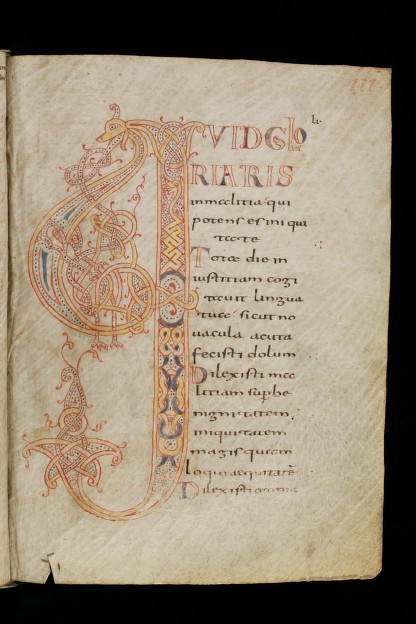 QVID GLO li.
RIARIS
in malitia qui
potens es ini qui
tate
Tota die in
iustitiam cogi
tauit lingua
tua sicut no
uacula acuta
fecisti dolum
Dilexisti ma
litiam supbe
nignitatem
iniquitatem
magis quam
loqui aequitatē
Dilexisti omnia